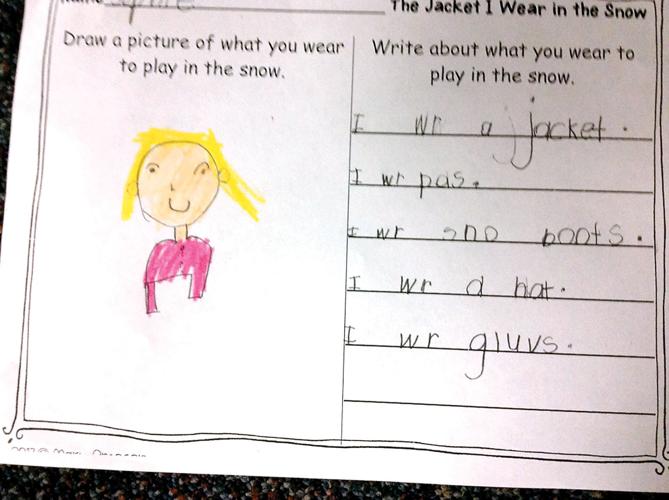 The Jacket I Wear in the Snow
Draw a picture of what you wear
to play in the snow.
Write about what you wear to
play in the snow.
I wr a jacket.
I wr pas.
I wr sno boots.
I wr a hat.
I wr gluvs.